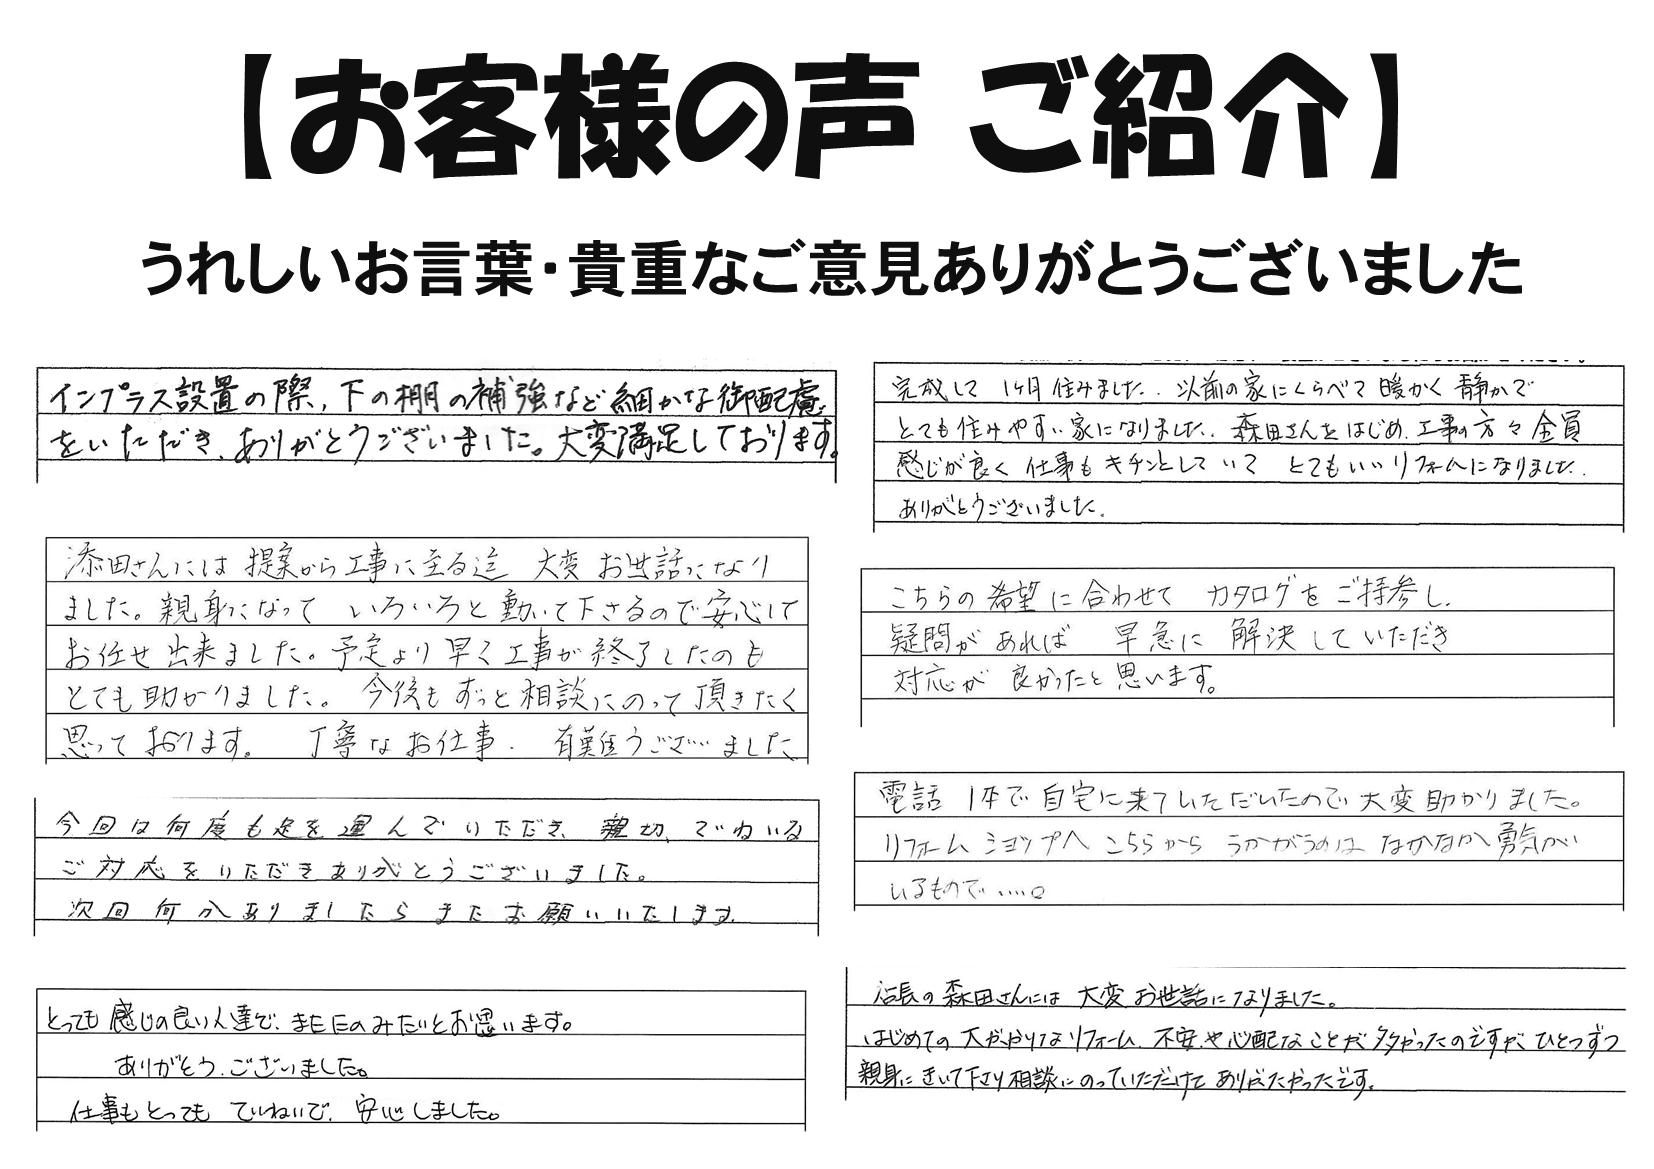 【お客様の声 ご紹介】
うれしいお言葉・貴重なご意見ありがとうございました
インプラス設置の際、下の棚の補強など細かな御配慮
をいただき、ありがとうございました。大変満足しております。
添田さんには 提案から工事に至る迄 大変 お世話になり
ました。親身になって いろいろと動いて下さるので安心して
お任せ出来ました。予定より早く工事が終了したのも
とても助かりました。 今後もずっと相談にのって頂きたく
思っております。 丁寧なお仕事. 有難うございました
今回は何度も足を運んでいただき、親切、ていねいな
ご対応をいただきありがとうございました。
次回何かありましたらまたお願いいたします。
とっても感じの良い人達で、またたのみたいとお思います。
ありがとう.ございました。
仕事もとっても ていねいで、安心しました。
完成して 1ヶ月 住みました. 以前の家にくらべて 暖かく 静かで
とても住みやすい家になりました. 森田さんをはじめ、工事の方々 全員
感じが良く 仕事も キチンとしていて とてもいいリフォームになりました.
ありがとうございました.
こちらの希望に合わせて カタログをご持参し、
疑問があれば 早急に 解決していただき
対応が 良かったと思います。
電話 1本で自宅に来ていただいたので大変助かりました。
リフォームショップへ こちらから うかがうのは なかなか勇気が
いるもので.....。
店長の 森田さんには 大変 お世話になりました。
はじめての 大がかりなリフォーム、不安や心配なことが多かったのですが、ひとつずつ
親身に きいて下さり相談にのっていただけて ありがたかったです。